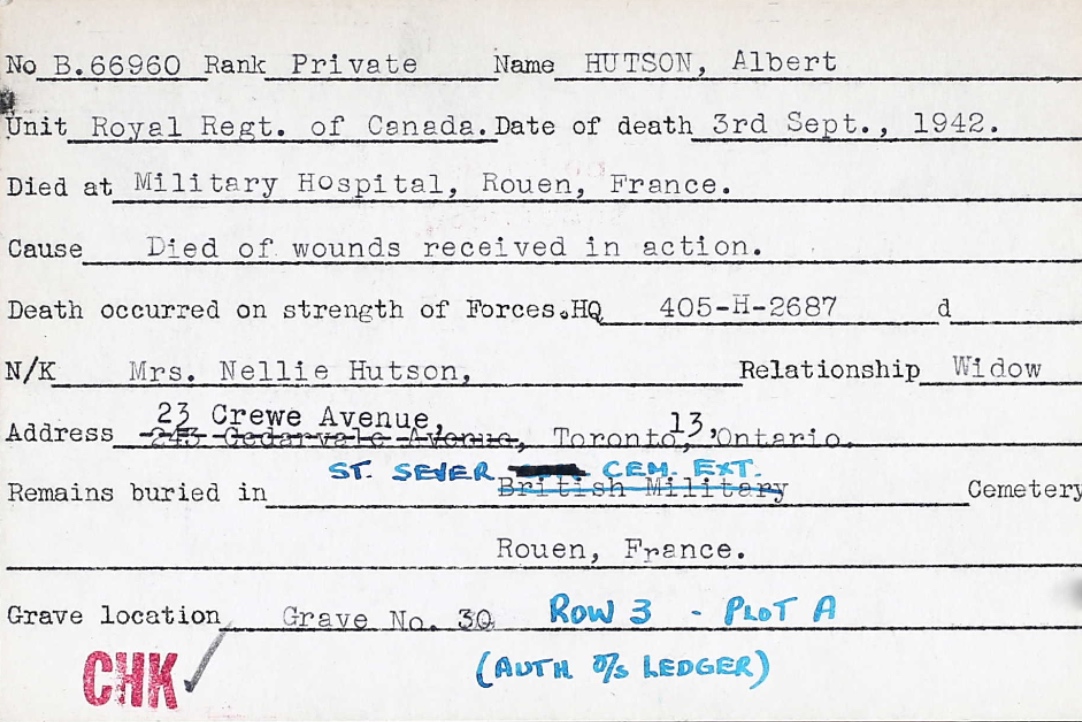 No B.66960 Rank Private Name HUTSON, Albert
Unit Royal Regt. of Canada. Date of death 3rd Sept., 1942.
Died at Military Hospital, Rouen, France.
Cause Died of wounds received in action.
Death occurred on strength of Forces. HQ 405-H-2687 d
N/K Mrs. Nellie Hutson, Relationship Widow
23 Crewe Avenue,
Address 243 Cedarvale Avenue, Toronto, 13, Ontario.
ST. SEVER CEM. EXT.
Remains buried in British Military Cemetery
Rouen, France.
Grave location Grave No. 30 ROW 3 - PLOT A
CHK (AUTH O/S LEDGER)